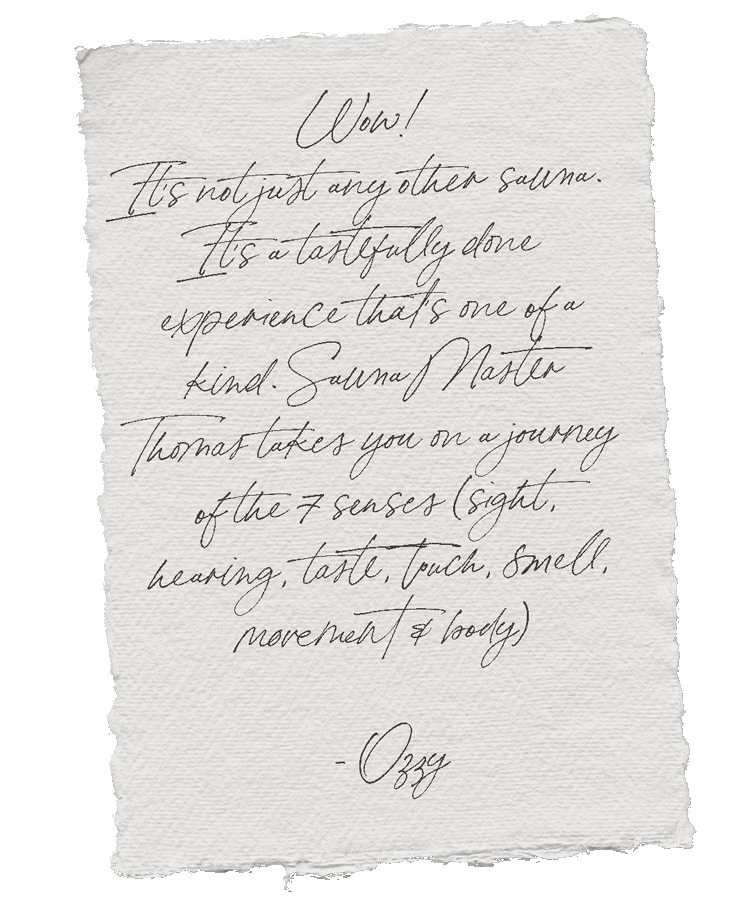 Wow!
It's not just any other sauna.
It's a tastefully done
experience that's one of a
kind. Sauna Master
Thomas takes you on a journey
of the 7 senses (sight,
hearing, taste, touch, smell,
movement & body)
- Ozzy